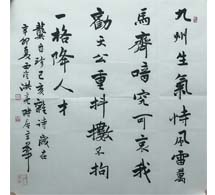 九州生氣恃風雷萬
馬齊喑究可哀我
勸天公重抖擻不拘
一格降人才
龔自珍己亥雜詩歲在
辛卯夏